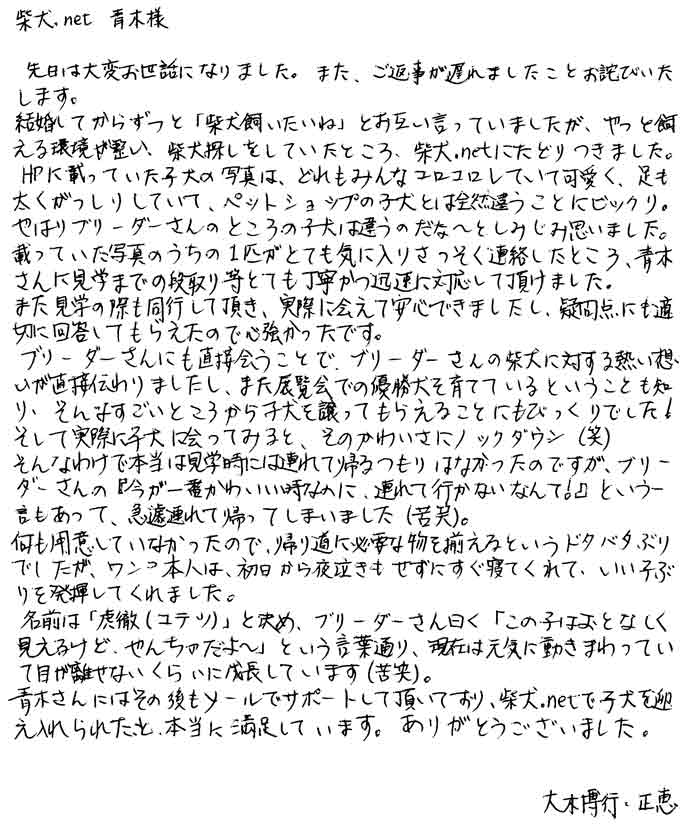 柴犬.net 青木様
先日は大変お世話になりました。また、ご返事が遅れましたことお詫びいた
します。
結婚してからずっと「柴犬飼いたいね」とお互い言っていましたが、やっと飼
える環境が整い、柴犬探しをしていたところ、柴犬.netにたどりつきました。
HPに載っていた子犬の写真は、どれもみんなコロコロしていて可愛く、足も
太くがっしりしていて、ペットショップの子犬とは全然違うことにビックリ。
やはりブリーダーさんのところの子犬は違うのだな〜としみじみ思いました。
載っていた写真のうちの1匹がとても気に入りさっそく連絡したところ、青木
さんに見学までの段取り等とても丁寧かつ迅速に対応して頂けました。
また見学の際も同行して頂き、実際に会えて安心できましたし、疑問点にも適
切に回答してもらえたので心強かったです。
ブリーダーさんにも直接会うことで、ブリーダーさんの柴犬に対する熱い想
いが直接伝わりましたし、また展覧会での優勝犬を育てているということも知
り、そんなすごいところから子犬を譲ってもらえることにもびっくりでした!
そして実際に子犬に会ってみると、そのかわいさにノックダウン(笑)
そんなわけで本当は見学時には連れて帰るつもりはなかったのですが、ブリー
ダーさんの『今が一番かわいい時なのに、連れて行かないなんて!』という一
言もあって、急遽連れて帰ってしまいました(苦笑)。
何も用意していなかったので、帰り道に必要な物を揃えるというドタバタぶり
でしたが、ワンコ本人は、初日から夜泣きもせずにすぐ寝てくれて、いい子ぶ
りを発揮してくれました。
名前は「虎徹(コテツ)」と決め、ブリーダーさん曰く「この子はおとなしく
見えるけど、やんちゃだよ〜」という言葉通り、現在は元気に動きまわってい
て目が離せないくらいに成長しています(苦笑)。
青木さんにはその後もメールでサポートして頂いており、柴犬.netで子犬を迎
え入れられたこと、本当に満足しています。ありがとうございました。
大木博行・正恵